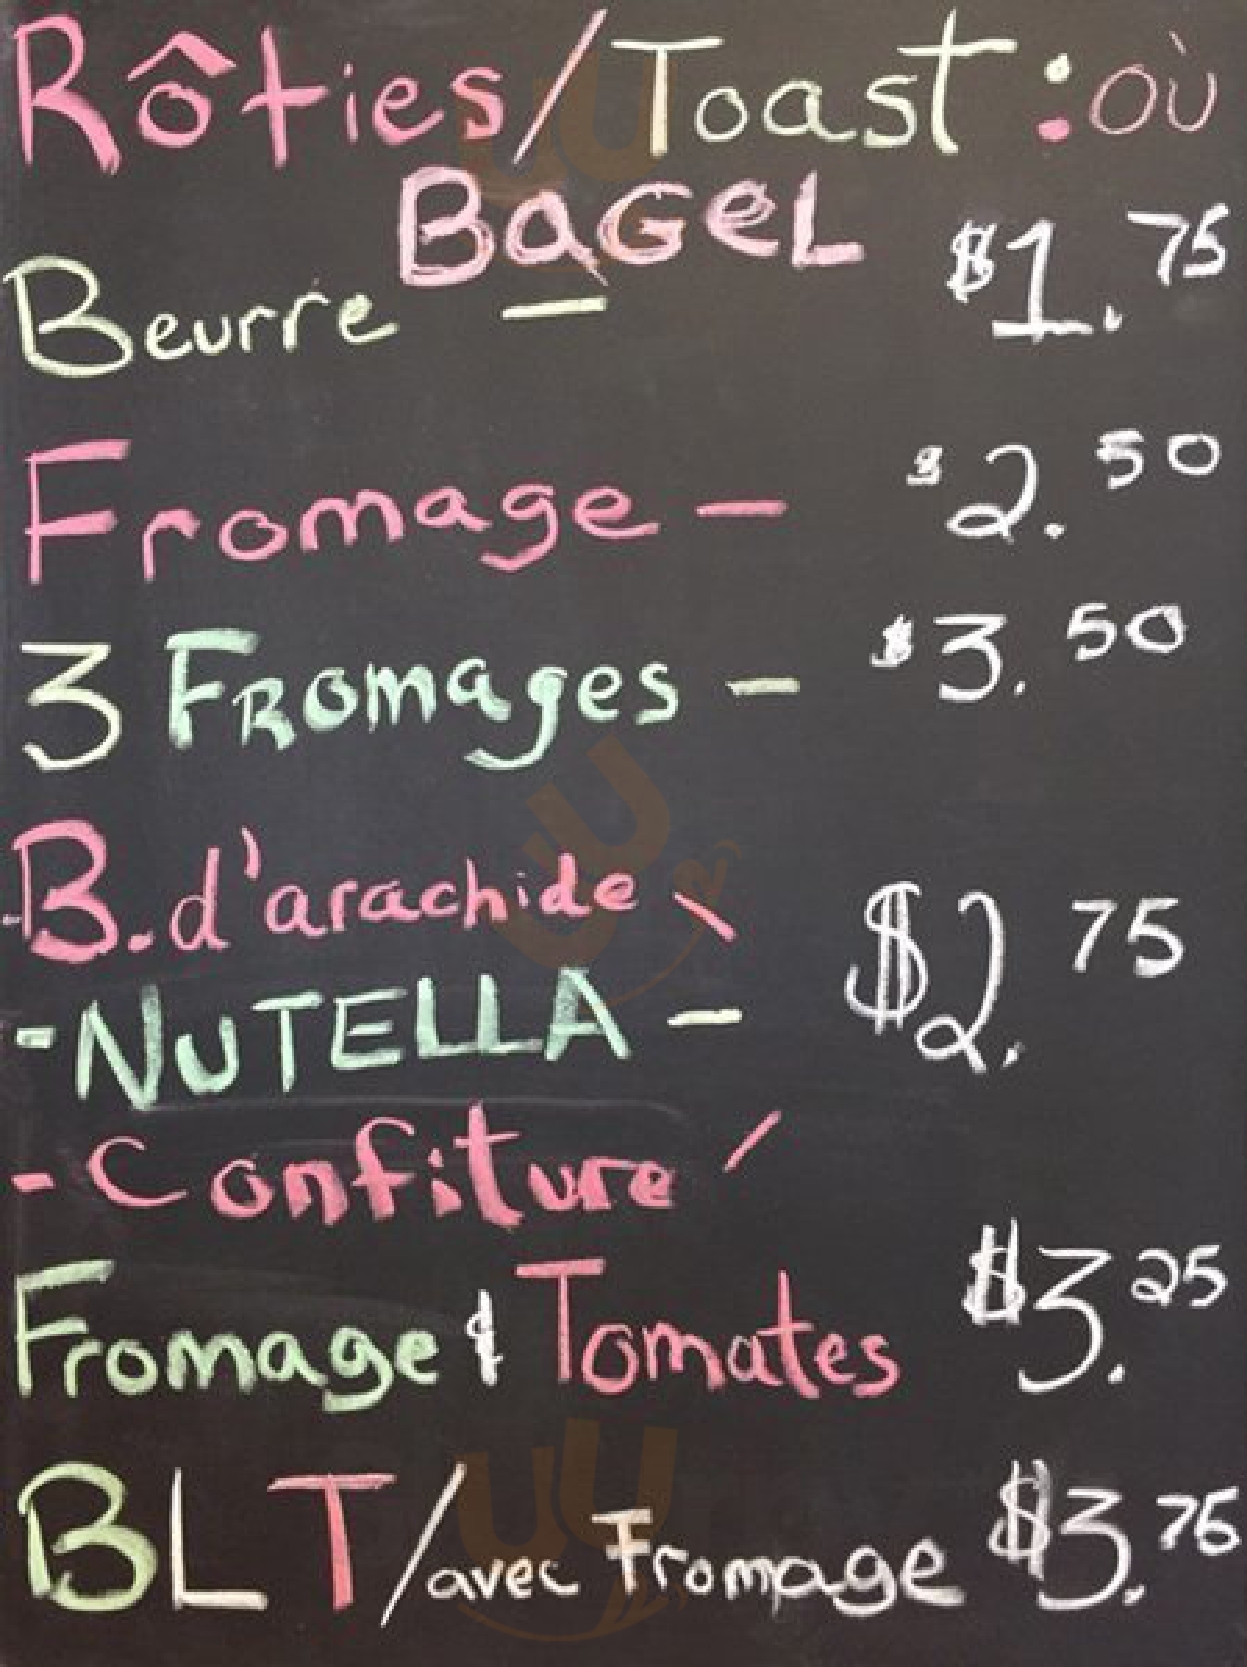 Rôties/Toast : où
BAGeL
Beurre — $1.75
Fromage — $2.50
3 FRomages — $3.50
B. d'arachide \
- NuTELLA — $2.75
- Confiture /
Fromage & Tomates $3.25
BLT/avec Fromage $3.75